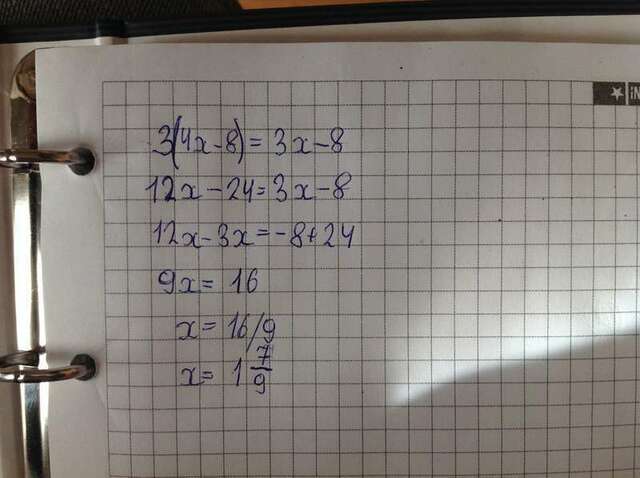 iN
3(4x-8)=3x-8
12x-24=3x-8
12x-3x=-8+24
9x=16
x=16/9
x=1 7/9